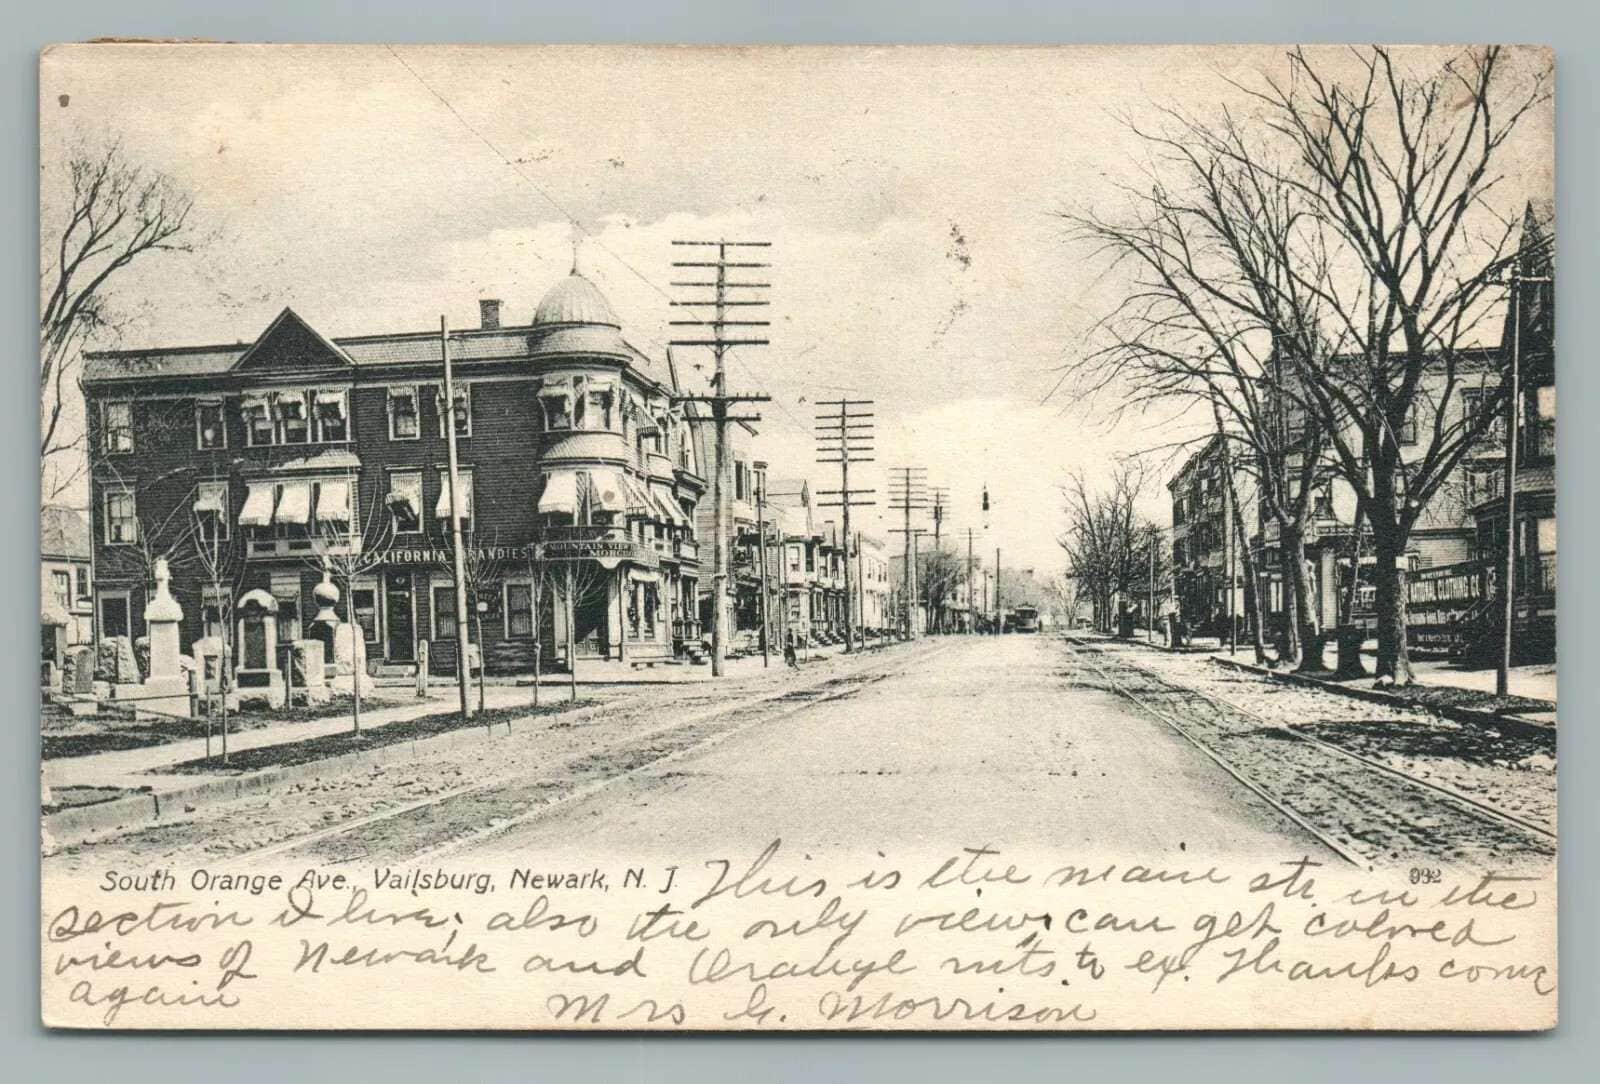 CALIFORNIA BRANDIES
MOUNTAIN VIEW
CLOTHING CO.
South Orange Ave., Vailsburg, Newark, N. J.
932
This is the main str. in the
section I live; also the only view, can get colored
views of Newark and Orange mts to ex. Thanks come
again
Mrs G. Morrison